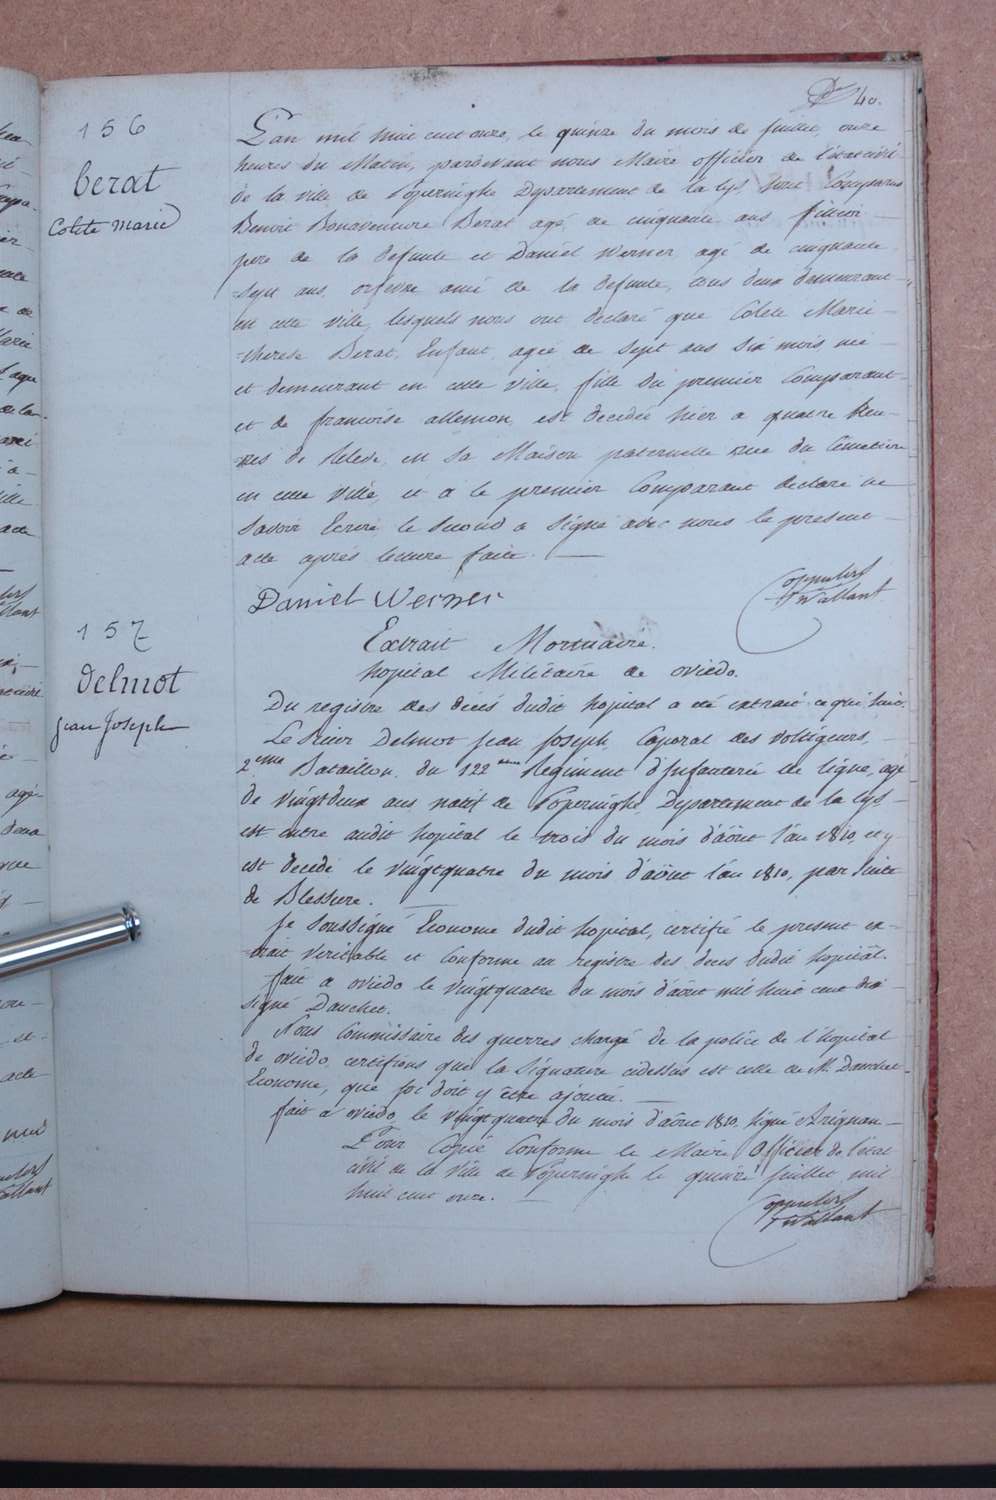 40.
156
berat
Colete Marie
L'an mil huit cent onze, le quinze du mois de juillet, onze
heures du Matin, pardevant nous Maire officier de l'état civil
de la ville de Poperinghe Departement de la Lys sont Comparus
Benoit Bonaventure Berat agé de cinquante ans
pere de la defunte et Daniel Werner agé de cinquante
-sept ans, orfevre ami de la defunte, tous deux demeurant
en cette ville, lesquels nous ont declaré que Colete Marie
-therese Berat, Enfant, agée de Sept ans Six mois née
et demeurant en cette ville, fille du premier Comparant
et de francoise allemon, est decedée hier a quatre heu-
-res de relevée, en sa Maison paternelle rue du Cimetiere
en cette ville, et a le premier Comparant declaré ne
savoir Ecrire le second a signé avec nous le present
acte après lecture faite.
Daniel Werner
Vaillant
157
delmot
jean Joseph
Extrait Mortuaire.
hopital Militaire de oviedo.
Du registre des décés dudit hopital a été extrait ce qui suit.
Le sieur Delmot jean Joseph, Caporal des Voltigeurs,
2eme Bataillon, du 122eme Regiment d'Infanterie de ligne, agé
de vingtdeux ans natif de Poperinghe, Departement de la Lys
est entre audit hopital le trois du mois d'août l'an 1810, et y
est decedé le vingtquatre du mois d'août l'an 1810, par suite
de Blessure.
je soussigné Econome dudit hopital, certifié le present ex-
-trait veritable et conforme au registre des deces dudit hopital.
fait a oviedo le vingtquatre du mois d'août mil huit cent dix
signé Dauchet.
Nous Commissaire des guerres chargé de la police de l'hopital
de oviedo, certifions que la signature cidessus est celle de Mr. Dauchet
Econome, que foi doit y être ajoutée.
fait a oviedo le vingtquatre du mois d'août 1810. signé
Pour Copie Conforme le Maire Officier de l'état
civil de la ville de Poperinghe le quinze juillet mil
huit cent onze.
Vaillant